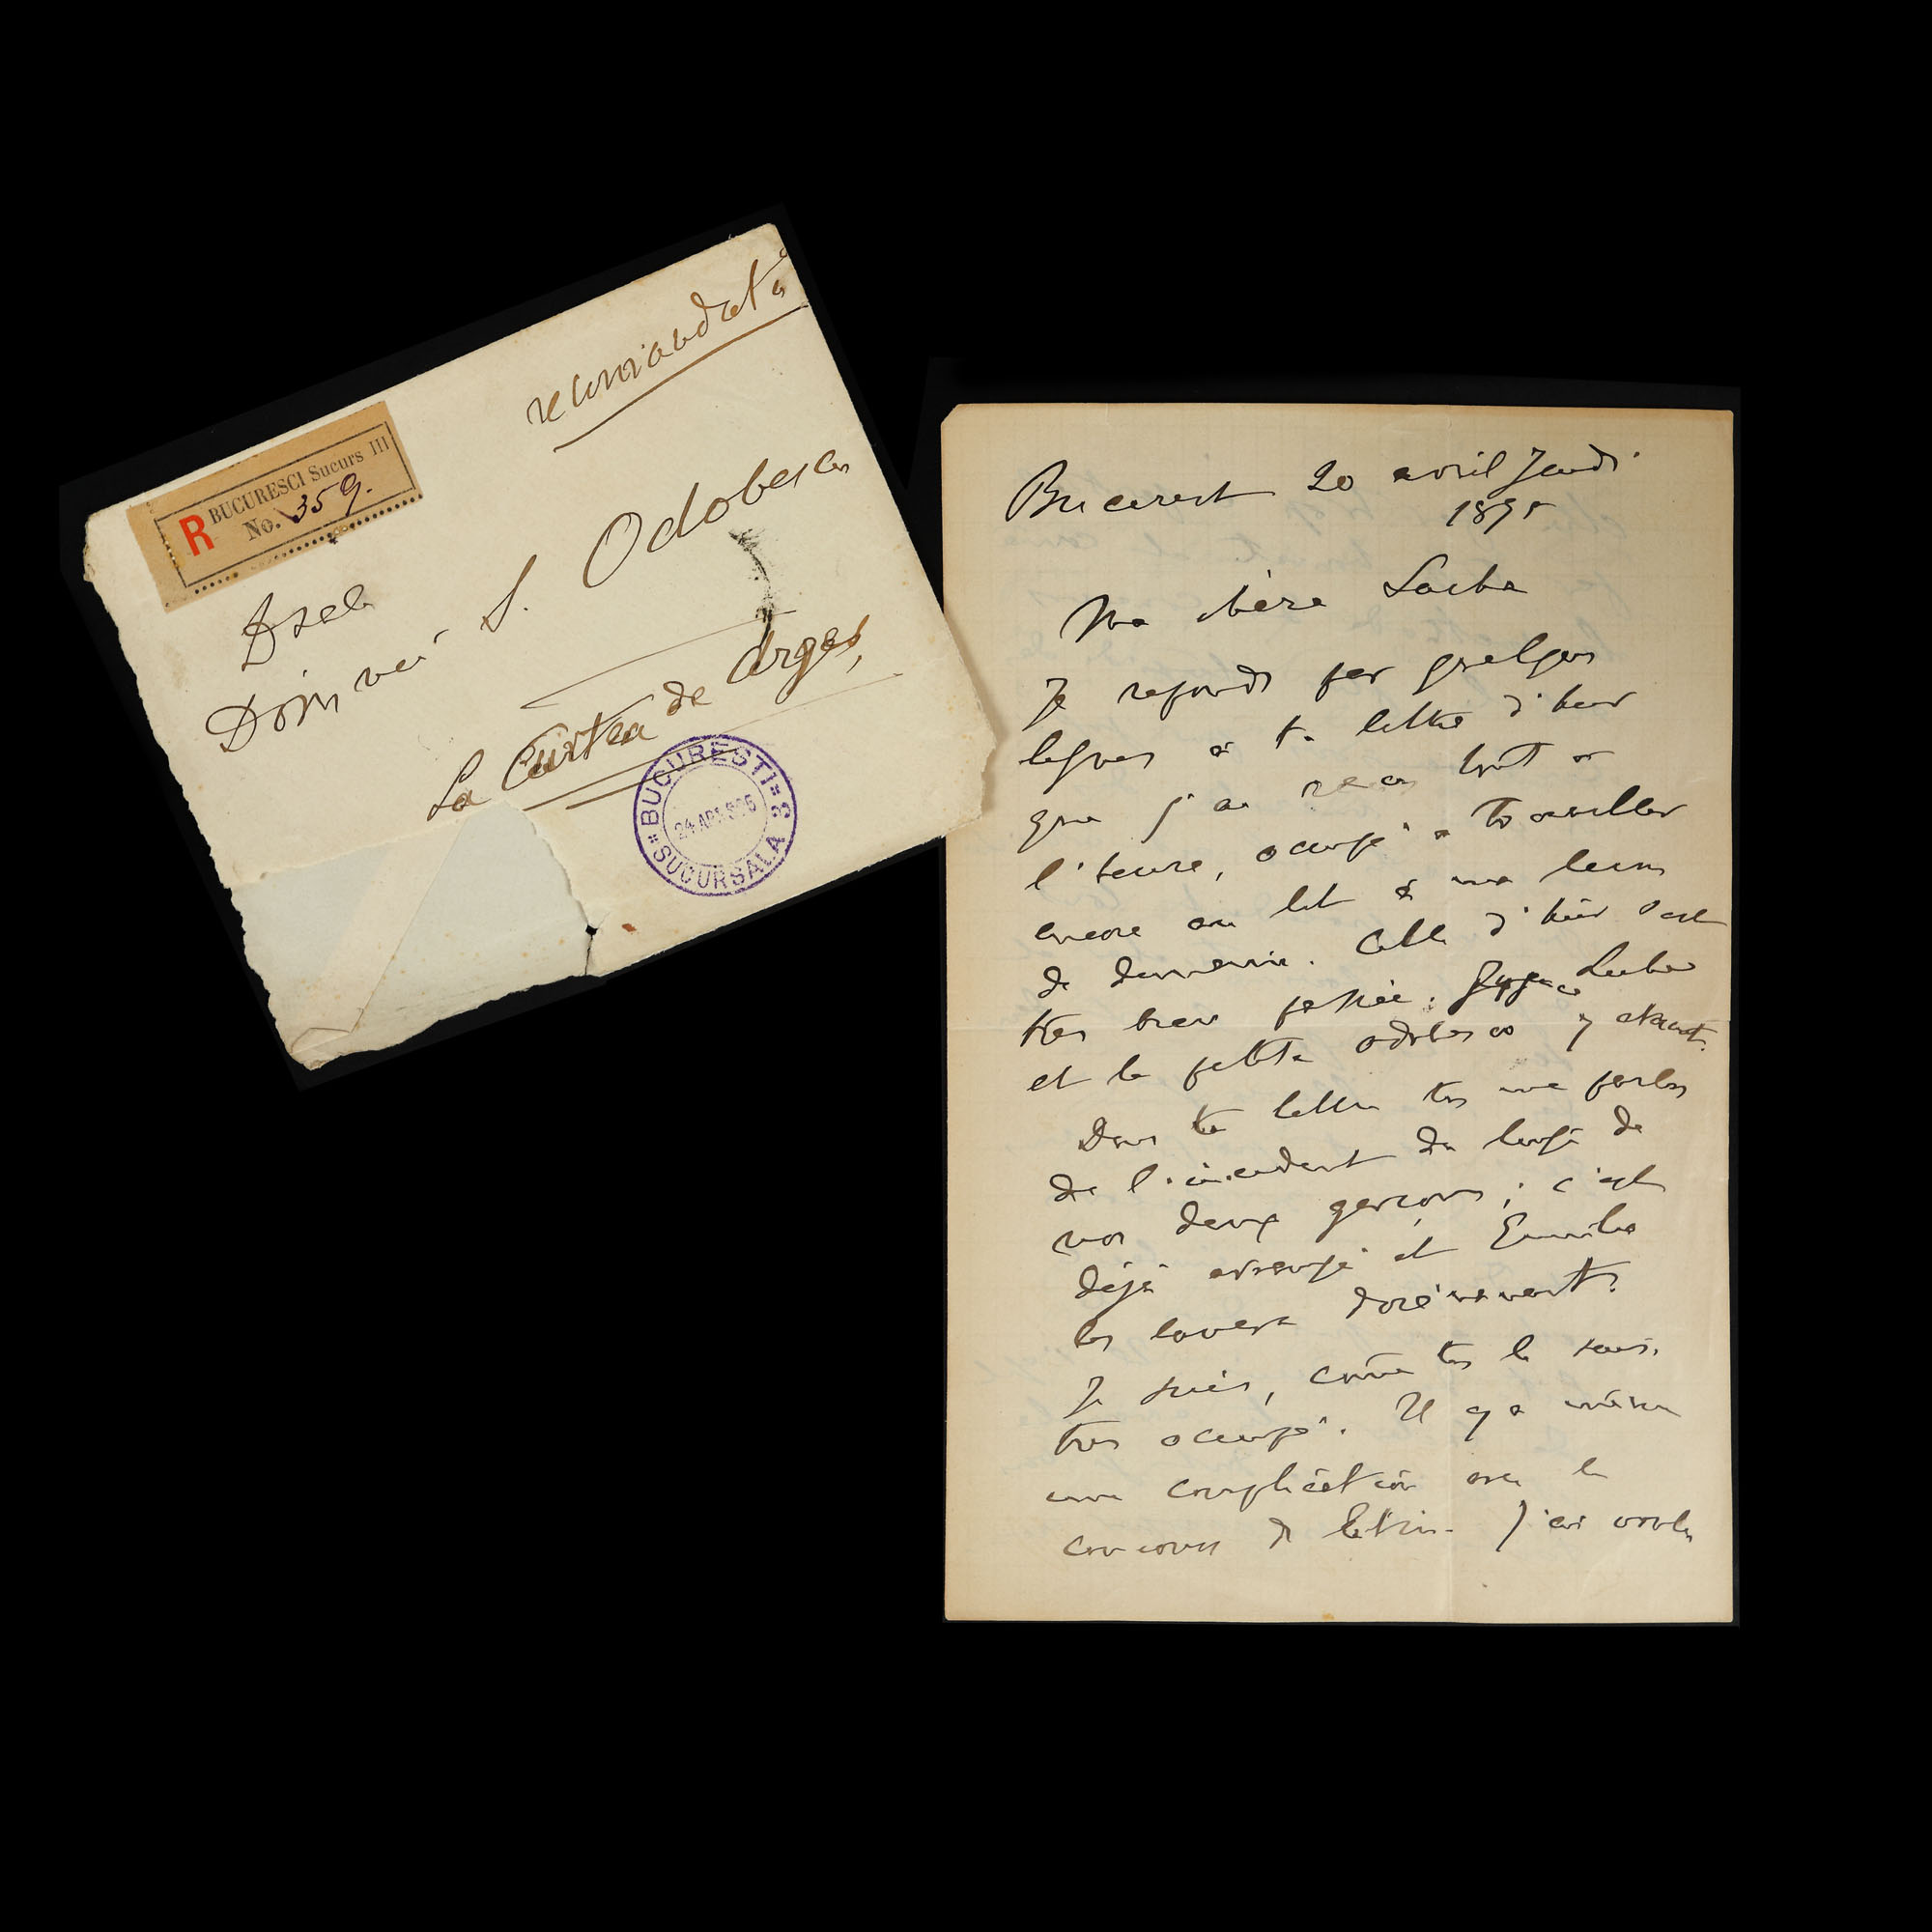 recomandată
R BUCURESCI Sucurs III
No. 359.
Dsale
Domnei S. Odobescu
La Curtea de Argeș,
BUCURESTI 3
24 APR 895
SUCURSALA
Bucarest 20 avril Jeudi
1895
Ma chère Sacha
Je reponds par quelques
lignes à ta lettre d'hier
que j'ai recu tout a
l'heure, occupé a travailler
encore au lit à ma lecon
de demain. Celle d'hier s'est
très bien passée; Luba
et la petite Odobesco y etaient.
Dans ta lettre tu me parles
de l'incident du linge de
nos deux garcons; c'est
déjà arrangé et Emilie
les lavera dorénavant.
Je suis, come tu le sais,
tres occupé. Il y a même
une complication avec le
concours de latin. J'ai voulu